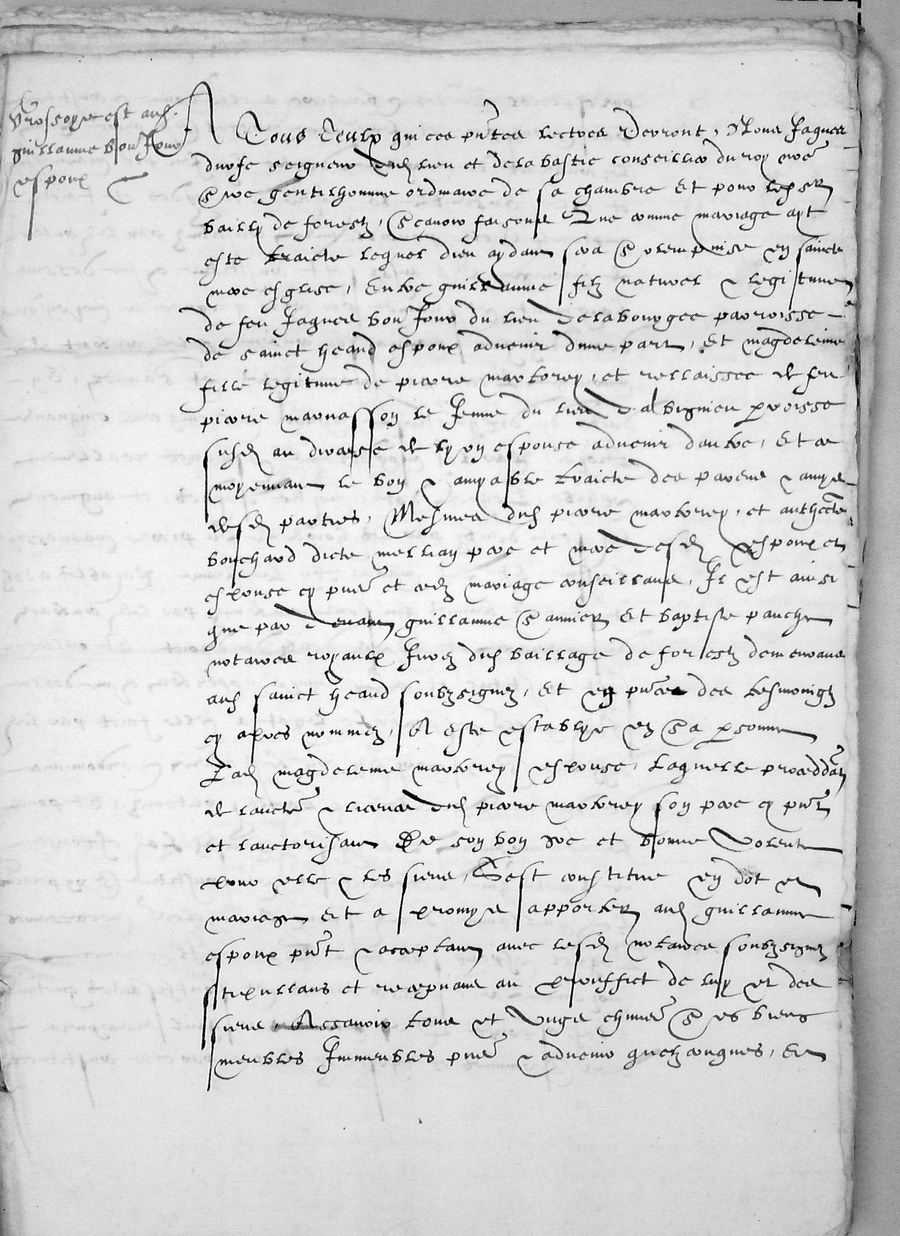 Grossoye est aud.
guillaume bonJour
espoux
A Tous Ceulx qui ces pntes lectres Verront, Nous Jaques
durfe seigneur dud lieu et de la bastie conseillier du roy nre
Sire gentilhomme ordinaire de sa chambre Et pour led sr
bailly de forestz, Scavoir faisons Que comme mariage ayt
este traicte lequel dieu aydant sera Solempnise en saincte
mere esglise, Entre guillaume filz naturel & legitime
de feu Jaques bonJour du lieu de la bourgee parroisse
de sainct heand espoux advenir dune part, Et magdeleine
fille legitime de pierre marborey, et rellaissee de feu
pierre marnasson le Jeune du lieu dalbignieu parroisse
susd au diocese de lyon espouse advenir daultre, Et ce
moyennant le bon & amyable traicte des parens & amys
desd parties, Mesmes dud pierre marborey, et anthte
bouchard dicte mellian pere et mere desd espoux et
espouse cy pnt et ced mariage conseillans, Il est ainsi
que par devant guillaume Sannier Et baptiste panchi
notaires royaulx Jurez dud bailliage de forestz demeurans
aud sainct heand soubzsignez, Et en pnce des tesmoingz
cy apres nommez, A este establye en Sa personne
Lad magdeleine marborey espouse, Laquelle proceddant
de laucte & licence dud pierre marborey son pere cy pnt
et lauctorisant De son bon gre et bonne Volente
pour elle & les siens, Sest constitue en dot et
mariage Et a promys apporter aud guillaume
espoux pnt & aceptant avec lesd notaires soubzsignez
stipullans et recepvans au prouffict de luy et des
siens, Assavoir tous et Ungs chms Ses biens
meubles Immeubles pns & advenir quelzconques, Et